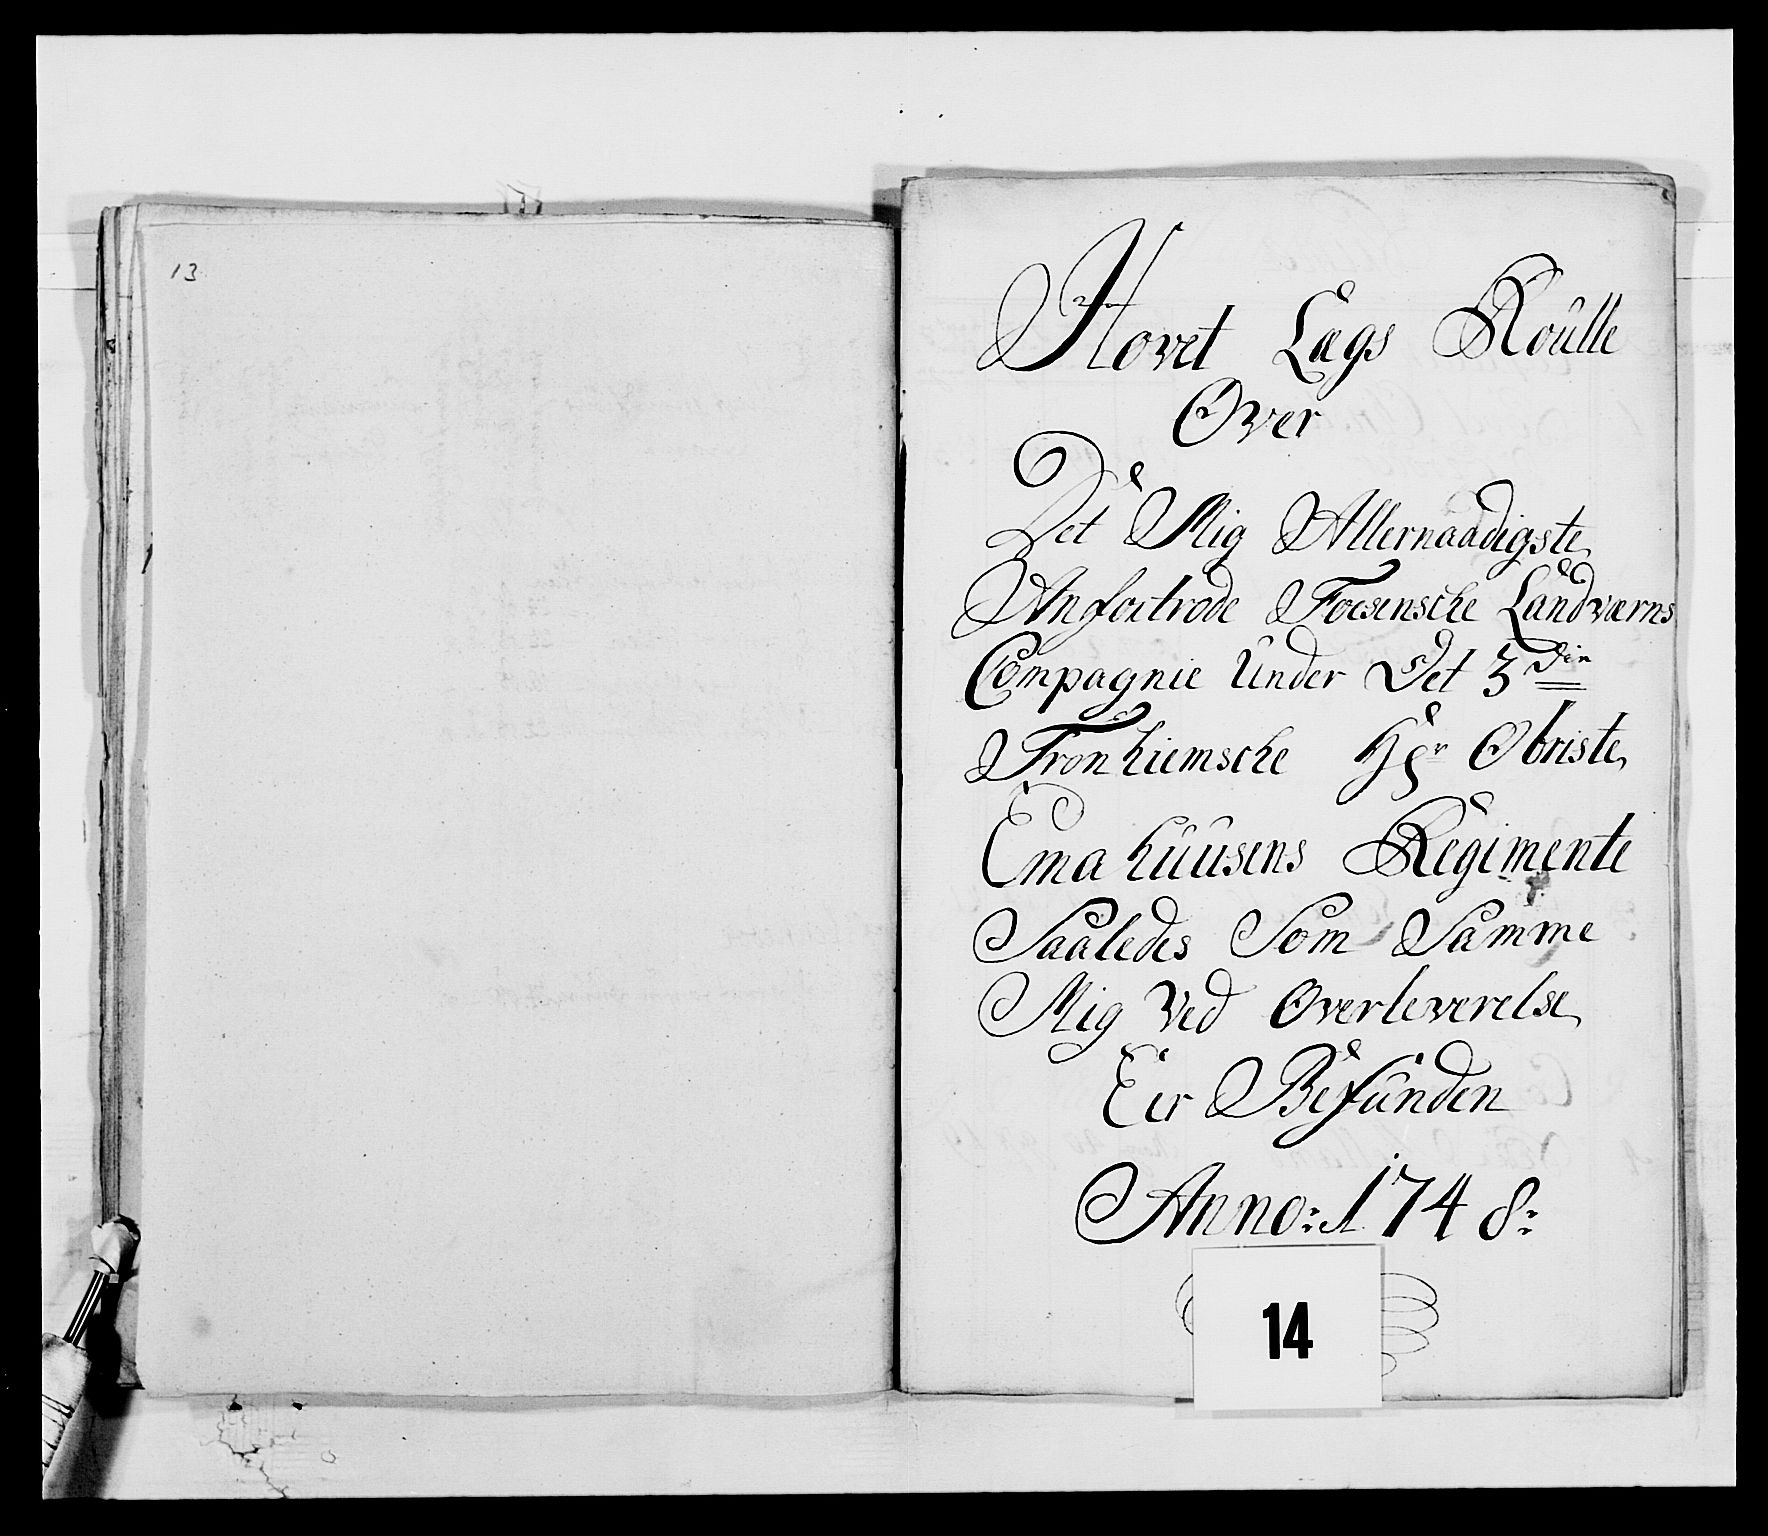 13
Hovet Lægs Roûlle
Over
Det Mig Allernaadigste
Anfortrode Foesensche Landværns
Compagnie Under Det 3 die
Tronhiemsche Hr Obriste
Emahuusens Regimente
Saaledes Som Samme
Mig Ved Overleverelse
Eir Befûnden
Anno: 1748:
14